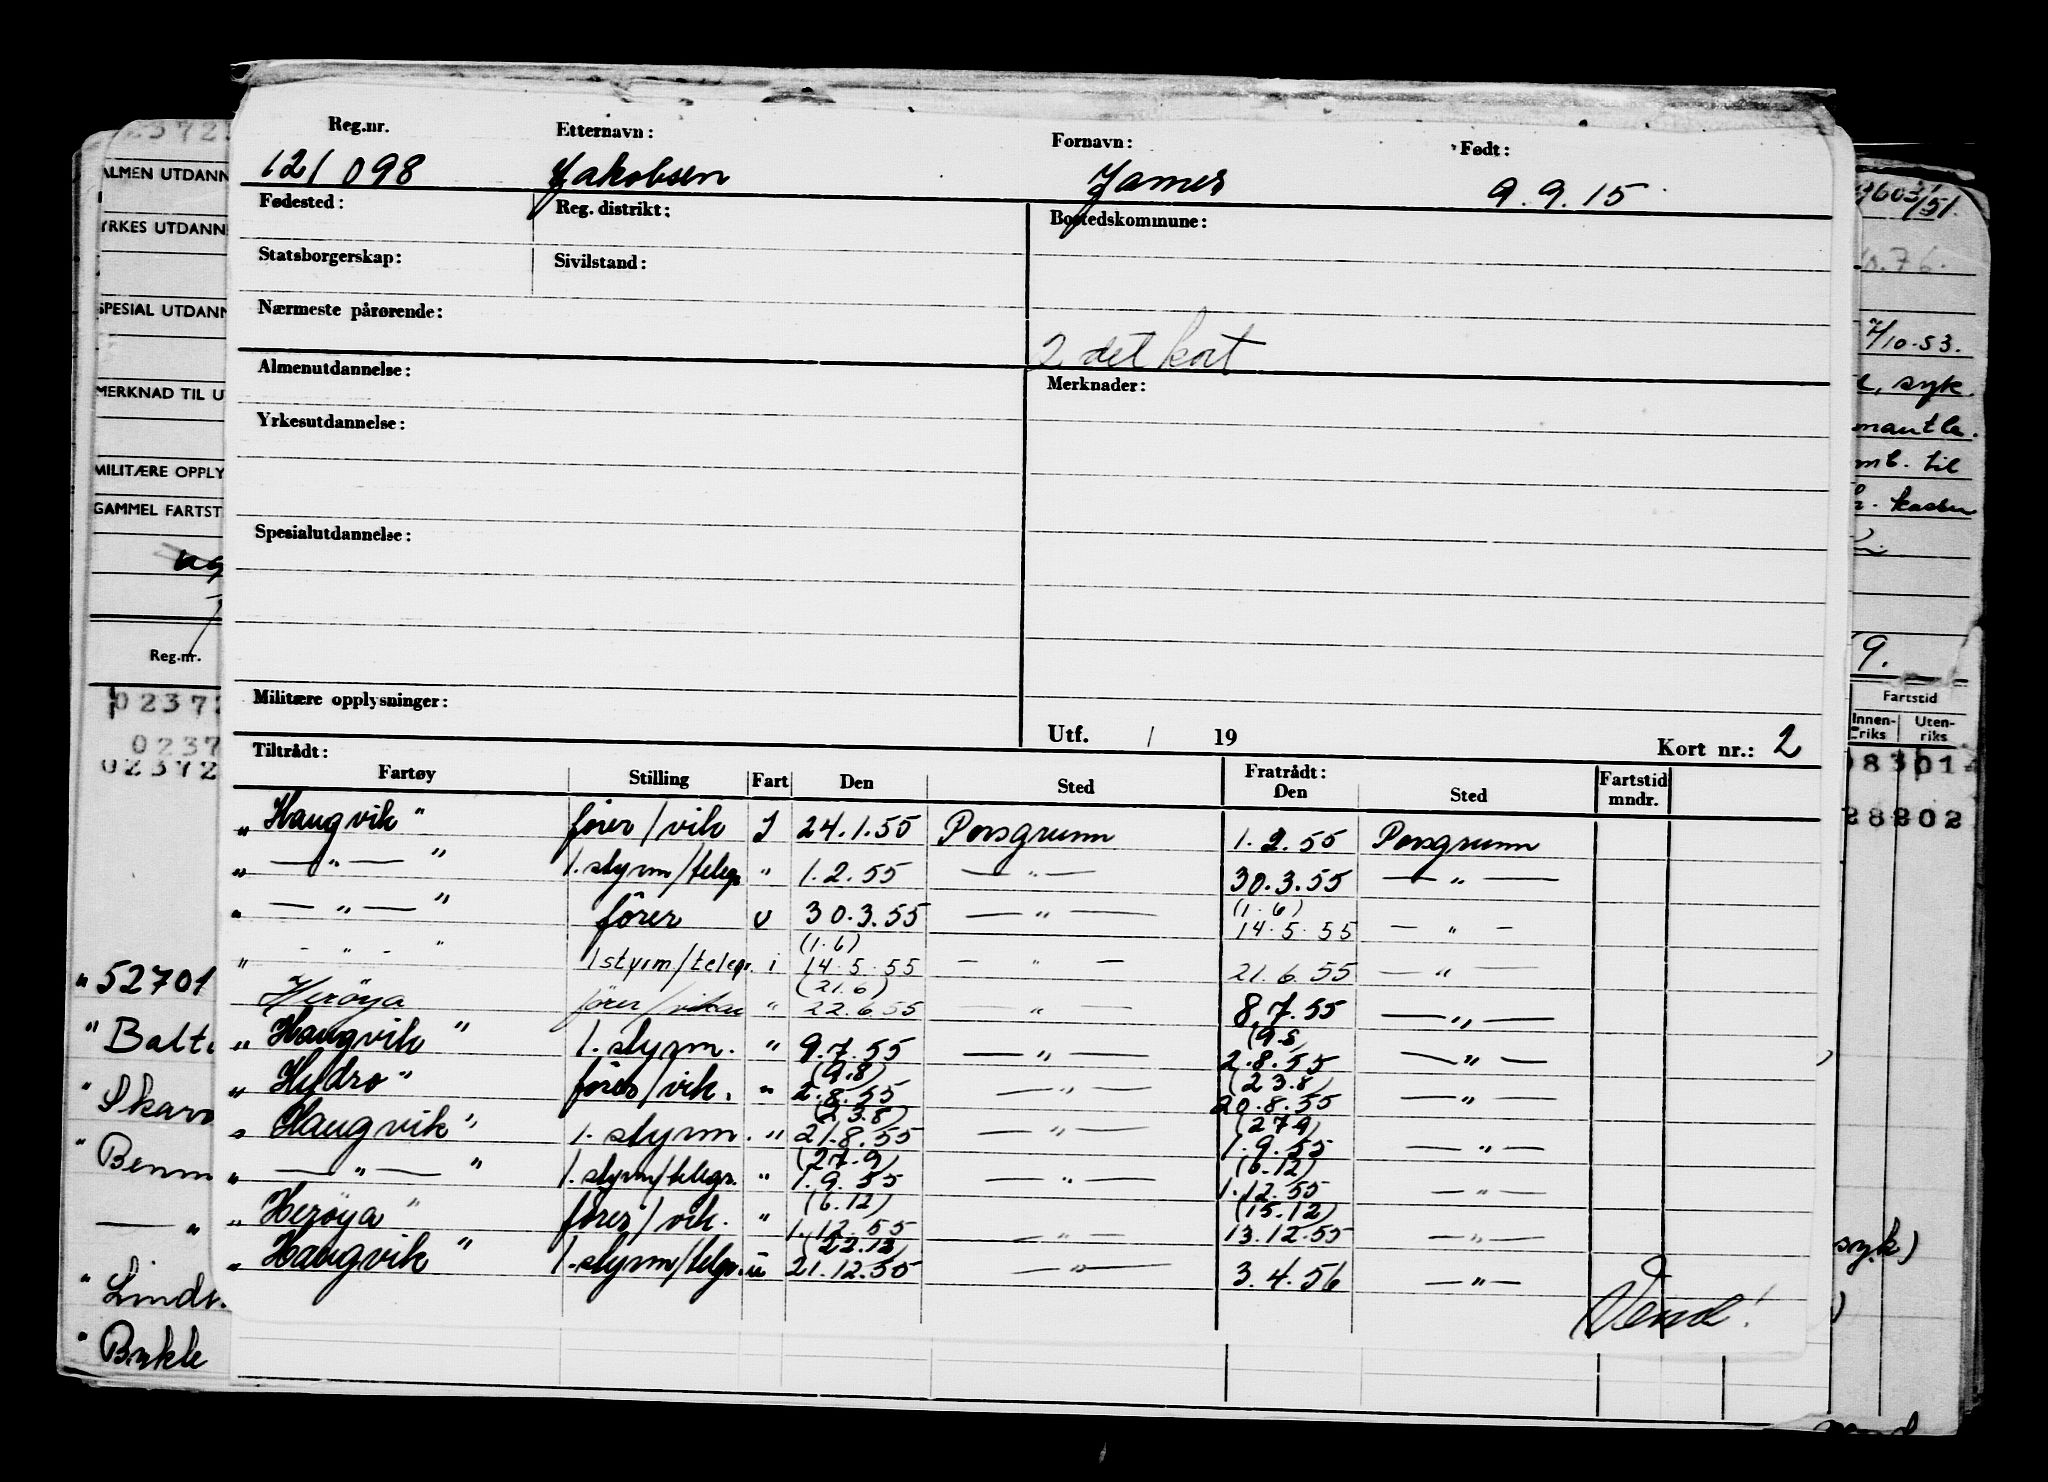 Reg.nr. Etternavn: Fornavn: Født:
121098 Jakobsen James 9.9.15
Fødested: Reg. distrikt: Bostedskommune:
Statsborgerskap: Sivilstand:
Nærmeste pårørende:
2 det kort
Almenutdannelse: Merknader:
Yrkesutdannelse:
Spesialutdannelse:
Militære opplysninger:
Utf. / 19 Kort nr.: 2
Tiltrådt: Fratrådt:
Fartøy Stilling Fart Den Sted Den Sted Fartstid mndr.
„ Haugvik " fører/vik I 24.1.55 Porsgrunn 1.2.55 Porsgrunn
„ — " — " 1. styrm/telegr " 1.2.55 — " — 30.3.55 — " —
(1.6)
" — " — " fører U 30.3.55 — " — 14.5.55 — " —
(1.6)
" - " - " 1 styrm/telegr. i 14.5.55 — " — 21.6.55 — " —
(21.6)
Herøya fører/vikar " 22.6.55 — " — 8.7.55 — " —
(9.8)
„ Haugvik " 1. styrm. " 9.7.55 — " — 2.8.55 — " —
(9.8) (23.8)
„ Hydro " fører/vik. " 2.8.55 — " — 20.8.55 — " —
(23.8) (27.9)
" Haugvik " 1. styrm. " 21.8.55 — " — 1.9.55 — " —
(27.9) (6.12)
" — " — " 1. styrm/telegr. " 1.9.55 — " — 1.12.55 — " —
(6.12) (15.12)
„ Herøya " fører/vik. " 1.12.55 — " — 13.12.55 — " —
(22.12)
" Haugvik " 1. styrm/telgr. u 21.12.55 — " — 3.4.56 — " —
Vend!
ALMEN UTDANN
YRKES UTDANN
SPESIAL UTDANN
MERKNAD TIL U
MILITÆRE OPPLY
GAMMEL FARTST
Reg.nr.
02372
0237
02372
" 52701
" Balt
" Skar
" Benm
— "
" Linds
" Bykle
9603/51.
0.76.
7/10-53.
syk.
mantle.
mb. til
kasten
9.
Fartstid
Innen-riks Uten-riks
08301
28202
syk)